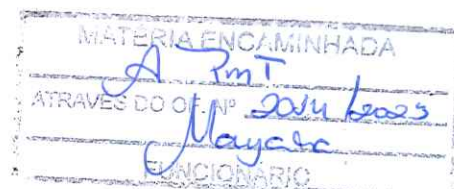 MATÉRIA ENCAMINHADA
A PMT
ATRAVÉS DO OF. Nº 2014/2023
Mayara
FUNCIONÁRIO